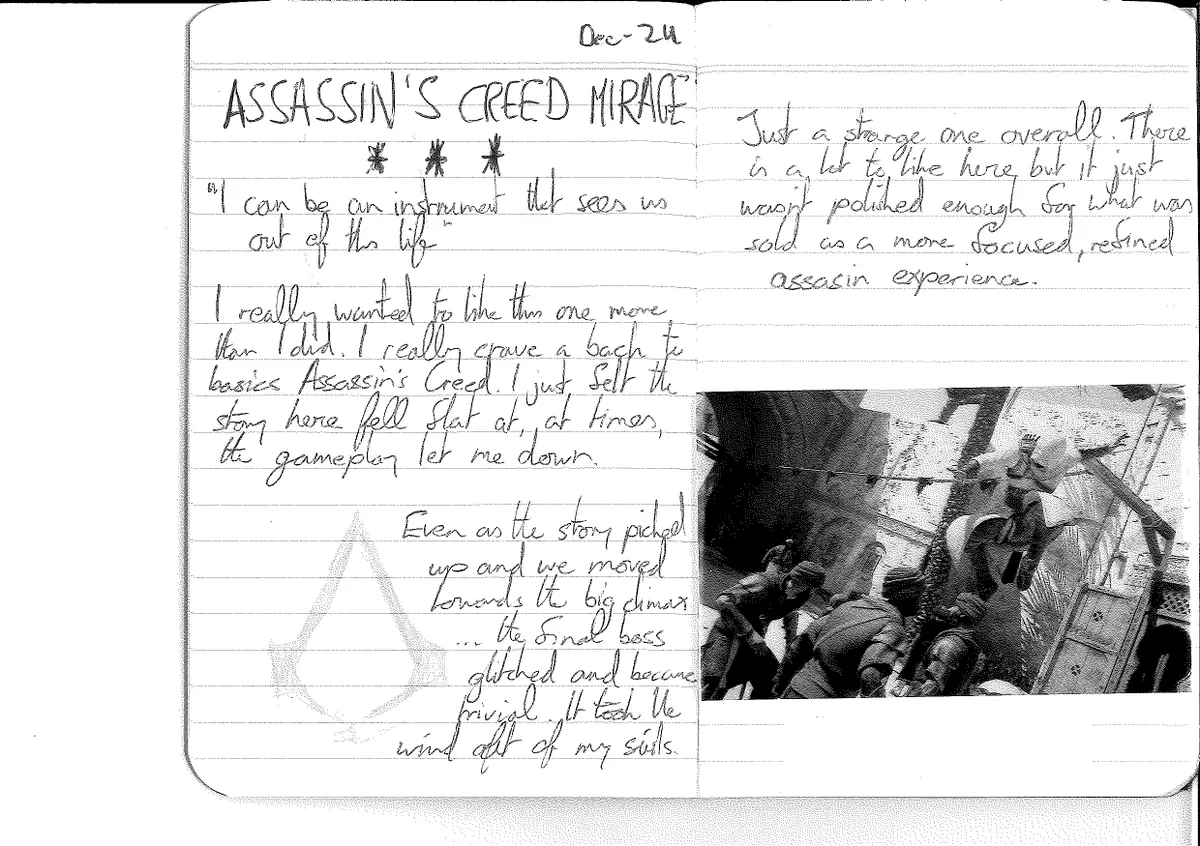 Dec-24
ASSASSIN'S CREED MIRAGE
* * *
"I can be an instrument that sees us
out of this life"
I really wanted to like this one more
than I did. I really crave a back to
basics Assassin's Creed. I just felt the
story here fell flat at, at times,
the gameplay let me down.
Even as the story picked
up and we moved
towards the big climax
... the final boss
glitched and became
trivial. It took the
wind out of my sails.
Just a strange one overall. There
is a lot to like here but it just
wasn't polished enough for what was
sold as a more focused, refined
assasin experience.